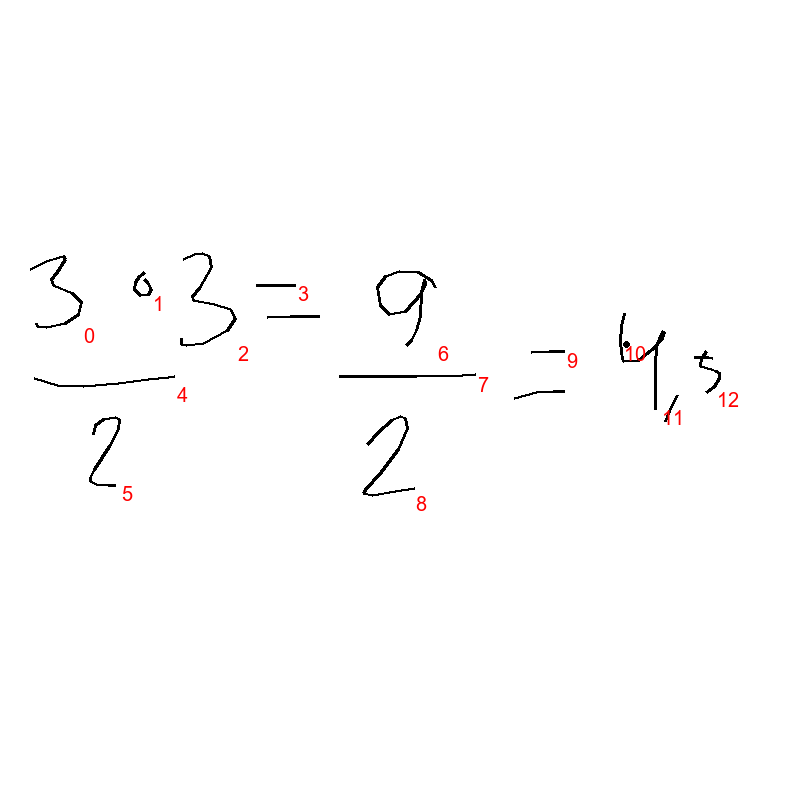 3 · 3 / 2 = 9 / 2 = 4,5
0 1 2 3 4 5 6 7 8 9 10 11 12